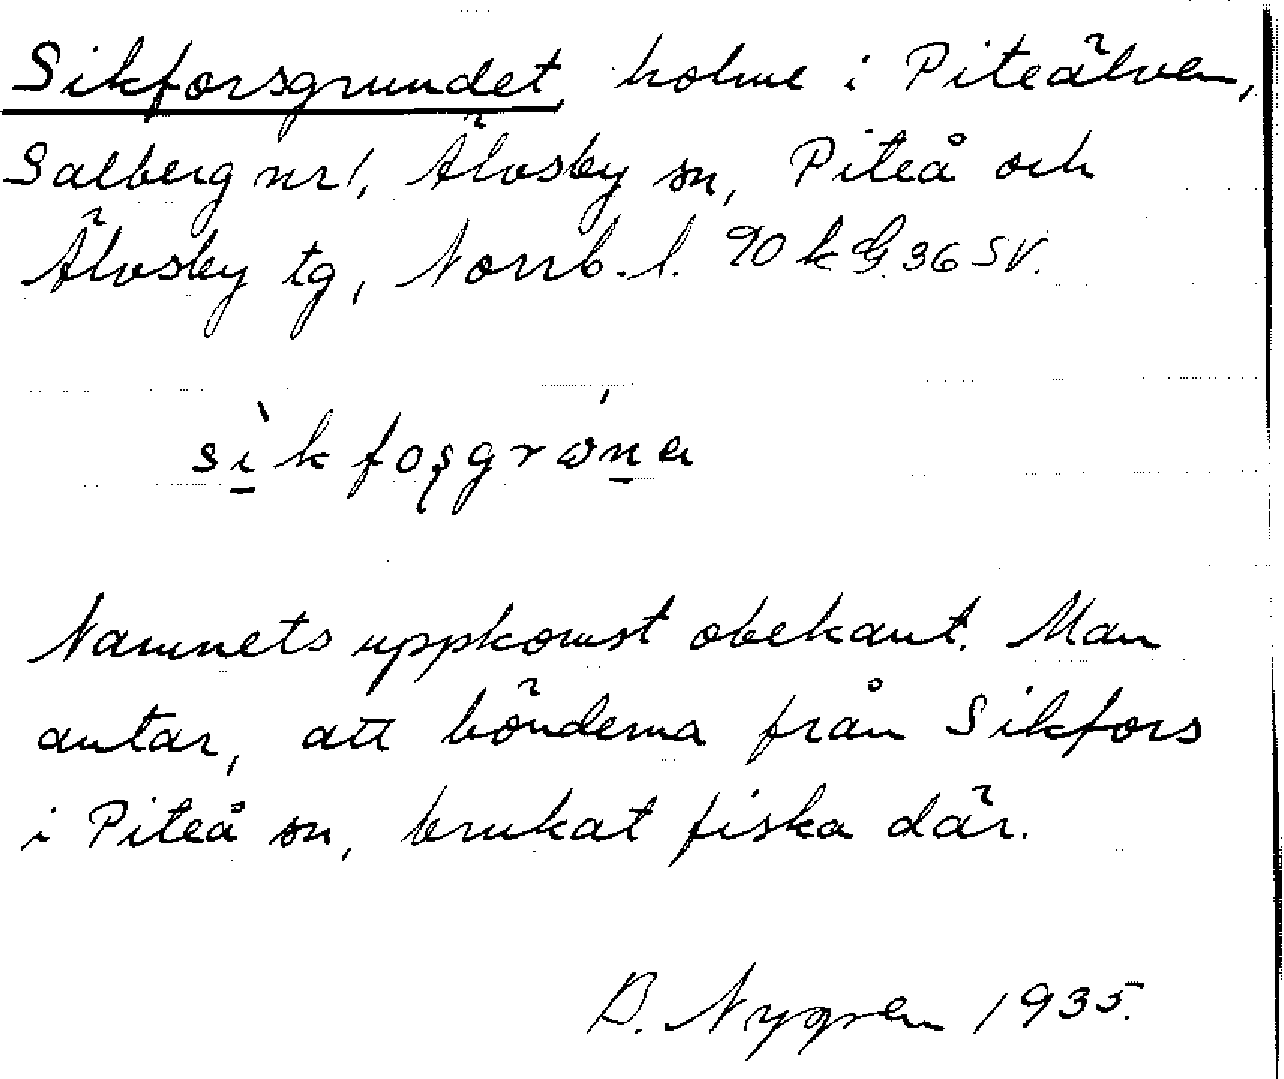 Sikforsgrundet, holme i Piteälven,
Salberg nr 1, Älvsby sn, Piteå och
Älvsby tg, Norrb. l. 90 k G. 36 SV.
sìkfoşgrώna
Namnets uppkomst obekant. Man
antar, att bönderna från Sikfors
i Piteå sn, brukat fiska där.
B. Nygren 1935.